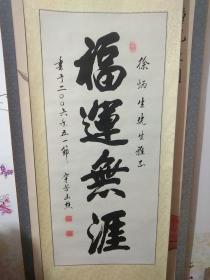 徐炳生先生雅正
福運無涯
書于二〇〇六年五一節